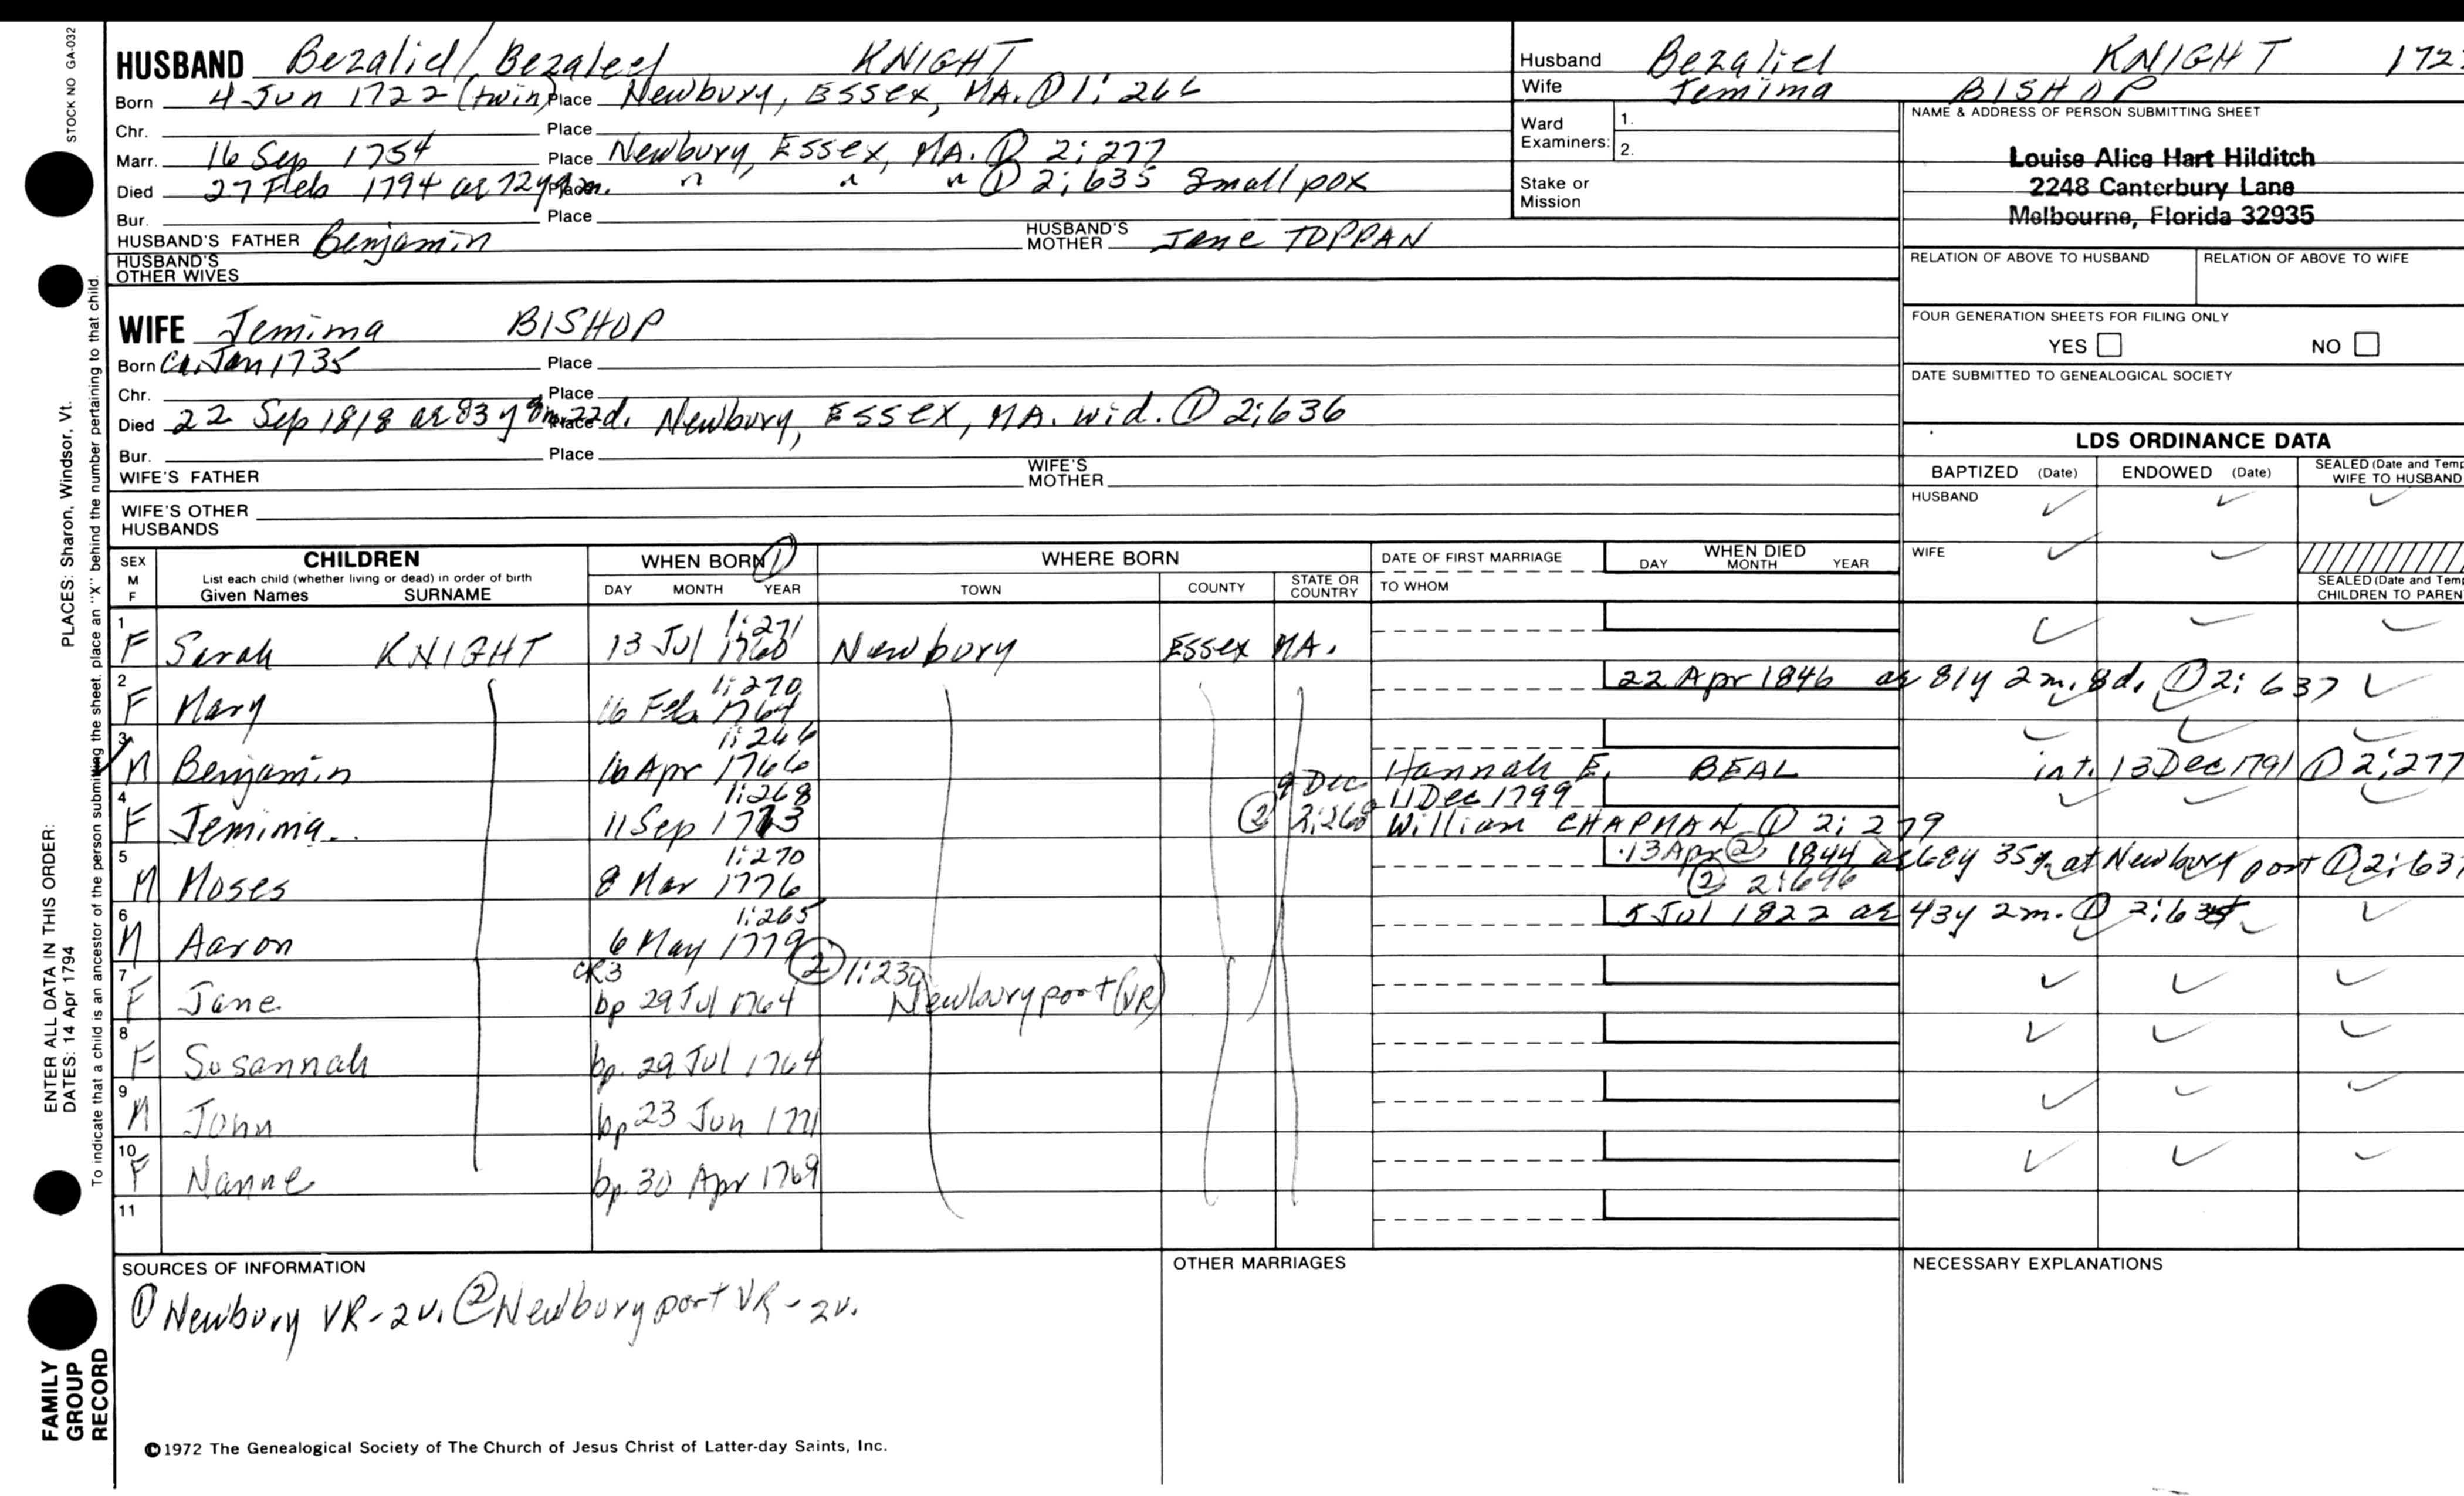 STOCK NO GA-032
PLACES: Sharon, Windsor, Vt.
ENTER ALL DATA IN THIS ORDER:
DATES: 14 Apr 1794
To indicate that a child is an ancestor of the person submitting the sheet, place an "X" behind the number pertaining to that child.
FAMILY
GROUP
RECORD
HUSBAND Bezaliel/Bezaleel KNIGHT
Born 4 Jun 1722 (twin) Place Newbury, Essex, MA. ① 1:266
Chr. Place
Marr. 16 Sep 1754 Place Newbury, Essex, MA. ① 2:277
Died 27 Feb 1794 ae 72y Place " " " ① 2:635 Small pox
Bur. Place
HUSBAND'S FATHER Benjamin HUSBAND'S MOTHER Jane TOPPAN
HUSBAND'S OTHER WIVES
WIFE Jemima BISHOP
Born Ca. Jan 1735 Place
Chr. Place
Died 22 Sep 1818 ae 83y 8m. 22d. Place Newbury, Essex, MA. wid. ① 2:636
Bur. Place
WIFE'S FATHER WIFE'S MOTHER
WIFE'S OTHER HUSBANDS
Husband Bezaliel KNIGHT 172
Wife Jemima BISHOP
Ward Examiners: 1. 2.
Stake or Mission
NAME & ADDRESS OF PERSON SUBMITTING SHEET
Louise Alice Hart Hilditch
2248 Canterbury Lane
Melbourne, Florida 32935
RELATION OF ABOVE TO HUSBAND RELATION OF ABOVE TO WIFE
FOUR GENERATION SHEETS FOR FILING ONLY
YES NO
DATE SUBMITTED TO GENEALOGICAL SOCIETY
LDS ORDINANCE DATA
BAPTIZED (Date) ENDOWED (Date) SEALED (Date and Temp WIFE TO HUSBAND
HUSBAND ✓ ✓ ✓
WIFE ✓ ✓
SEALED (Date and Temp CHILDREN TO PAREN
SEX M F CHILDREN WHEN BORN ① WHERE BORN DATE OF FIRST MARRIAGE WHEN DIED
List each child (whether living or dead) in order of birth
Given Names SURNAME DAY MONTH YEAR TOWN COUNTY STATE OR COUNTRY TO WHOM DAY MONTH YEAR
1 F Sarah KNIGHT 13 Jul 1760 1:271 Newbury Essex MA. ✓ ✓ ✓
2 F Mary 16 Feb 1764 1:270 22 Apr 1846 ae 81y 2m. 8d. ① 2:637 ✓
3 M Benjamin 16 Apr 1766 1:266 Hannah E. BEAL int. 13 Dec 1791 ① 2:277
4 F Jemima 11 Sep 1773 1:268 ② 9 Dec 2:268 11 Dec 1799 William CHAPMAN ① 2:279
5 M Moses 8 Mar 1776 1:270 13 Apr ② 1844 ae 68y at Newburyport ① 2:637 ② 2:696
6 M Aaron 6 May 1779 1:265 5 Jul 1822 ae 43y 2m. ① ✓
7 F Jane CR3 bp 29 Jul 1764 ② 1:230 Newburyport (VR) ✓ ✓ ✓
8 F Susannah bp. 29 Jul 1764 ✓ ✓ ✓
9 M John bp 23 Jun 1771 ✓ ✓ ✓
10 F Nanne bp. 30 Apr 1769 ✓ ✓ ✓
11
SOURCES OF INFORMATION OTHER MARRIAGES NECESSARY EXPLANATIONS
① Newbury VR-2v. ② Newburyport VR-2v.
©1972 The Genealogical Society of The Church of Jesus Christ of Latter-day Saints, Inc.